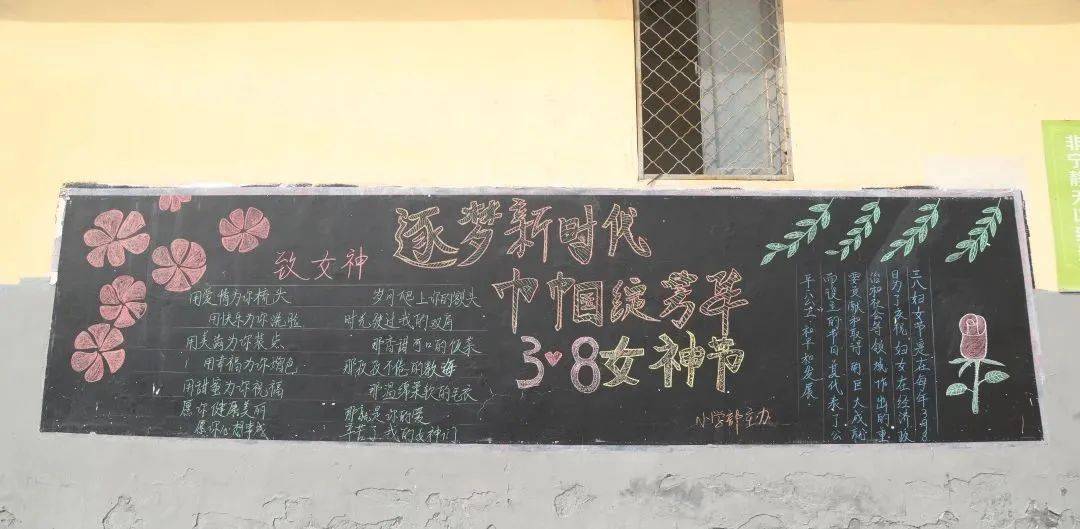 逐梦新时代
巾帼绽芳华
3♥8女神节
致女神
用爱情为你梳头
用快乐为你洗脸
为你装点
用幸福为你增色
用甜蜜为你祝福
愿你健康美丽
愿你心想事成
岁月爬上你的额头
时光绕过我的双肩
那香甜可口的饭菜
那孜孜不倦的教诲
那温暖柔软的毛衣
那就是你的爱
辛苦了我的女神们
小学部主办
三八妇女节是在每年3月8
日为了庆祝妇女在经济政
治和社会等领域作出的重
要贡献和取得的巨大成就
而设立的节日其代表了公
平公正和平和发展
非宁静无以致